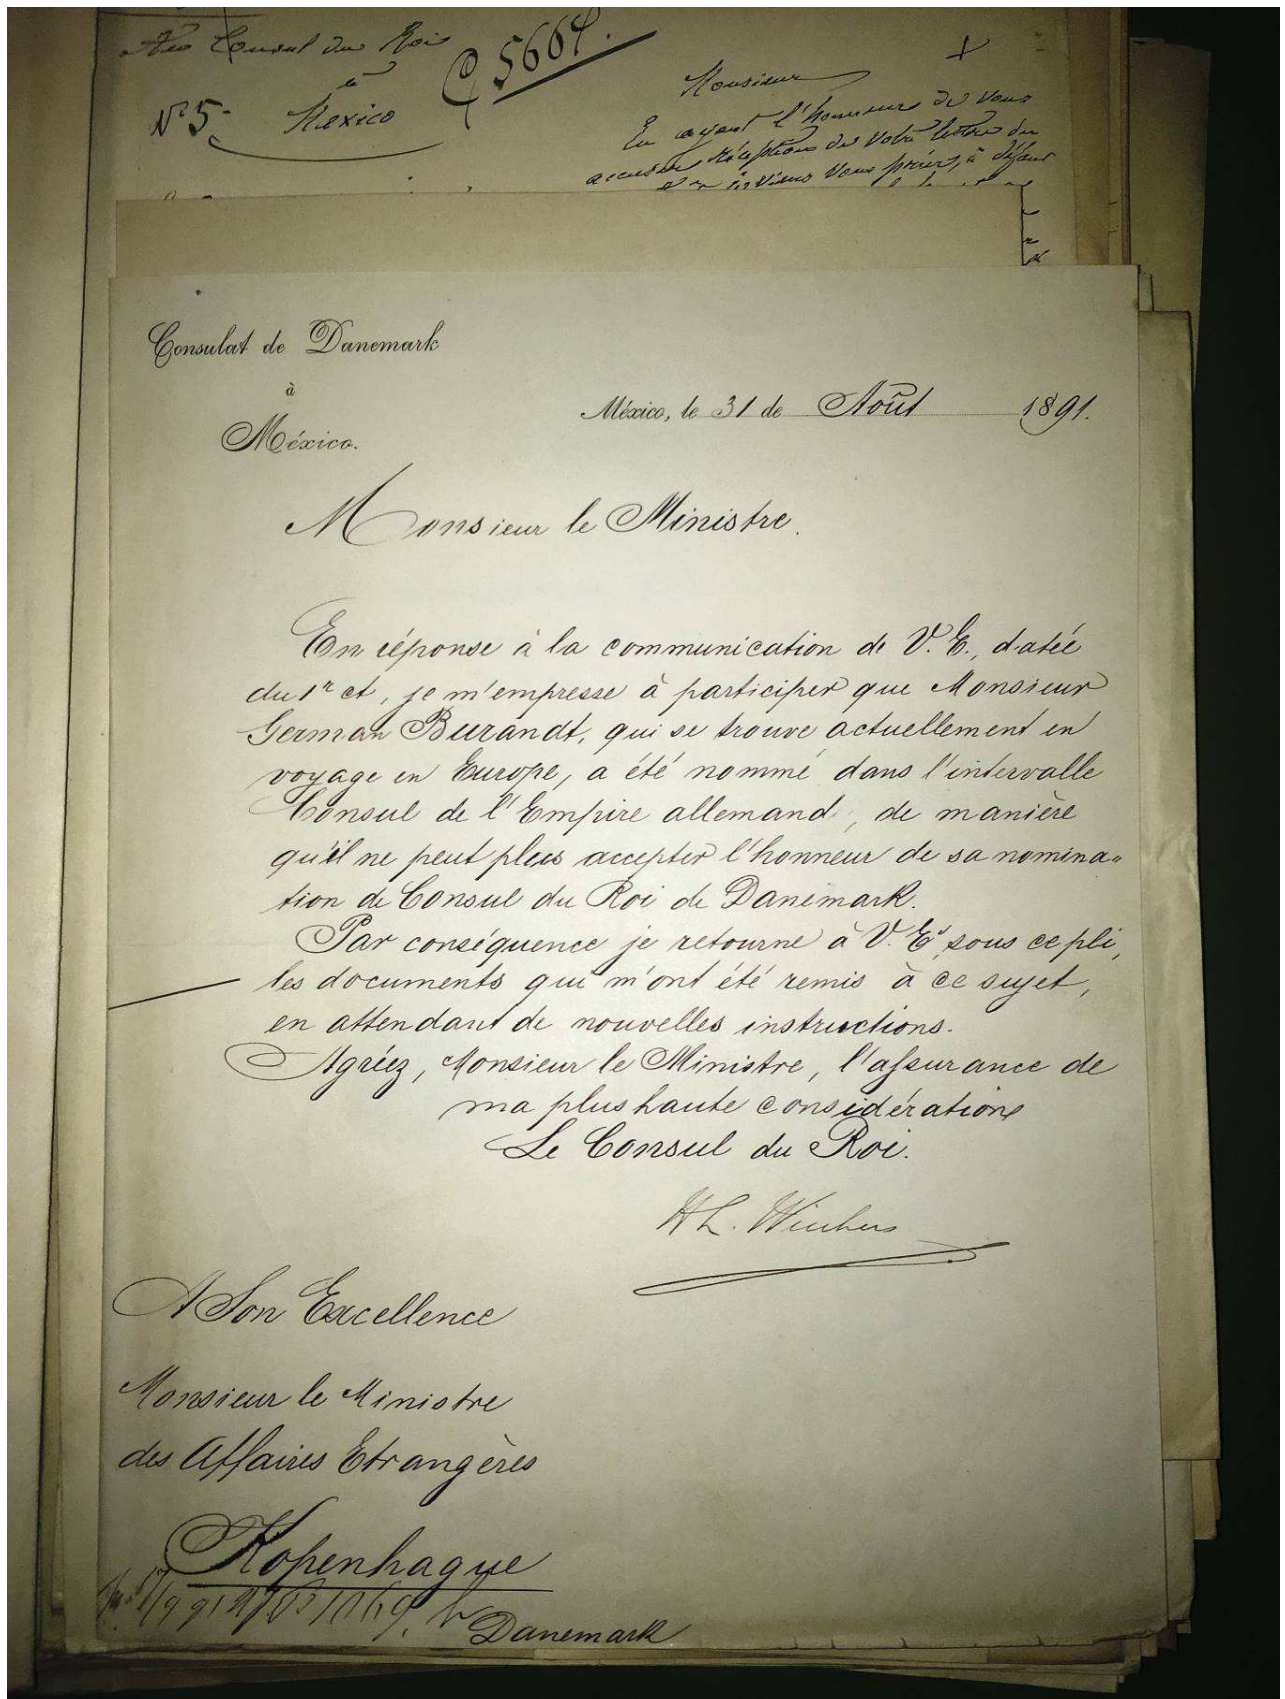 Au Consul du Roi
à
Mexico
N° 5.
5664.
Monsieur
En ayant l'honneur de vous
accuser réception de votre lettre du
viens vous prier, à défaut
Consulat de Danemark
à
México.
México, le 31 de Août 1891.
Monsieur le Ministre.
En réponse à la communication de V. E., datée
du 1r ct, je m'empresse à participer que Monsieur
German Burandt, qui se trouve actuellement en
voyage en Europe, a été nommé dans l'intervalle
Consul de l'Empire allemand, de manière
qu'il ne peut plus accepter l'honneur de sa nomina-
tion de Consul du Roi de Danemark.
Par conséquence je retourne à V. E. sous ce pli,
les documents qui m'ont été remis à ce sujet,
en attendant de nouvelles instructions.
Agréez, Monsieur le Ministre, l'assurance de
ma plus haute considération
Le Consul du Roi.
A Son Excellence
Monsieur le Ministre
des Affaires Etrangères
Kopenhague
Danemark